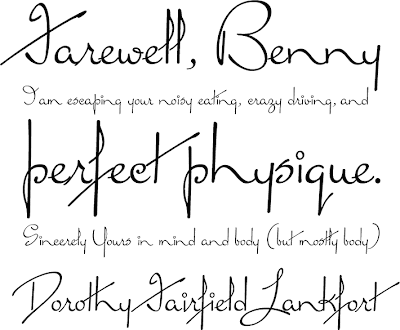 Farewell, Benny
I am escaping your noisy eating, crazy driving, and
perfect physique.
Sincerely Yours in mind and body (but mostly body)
Dorothy Fairfield Lankfort